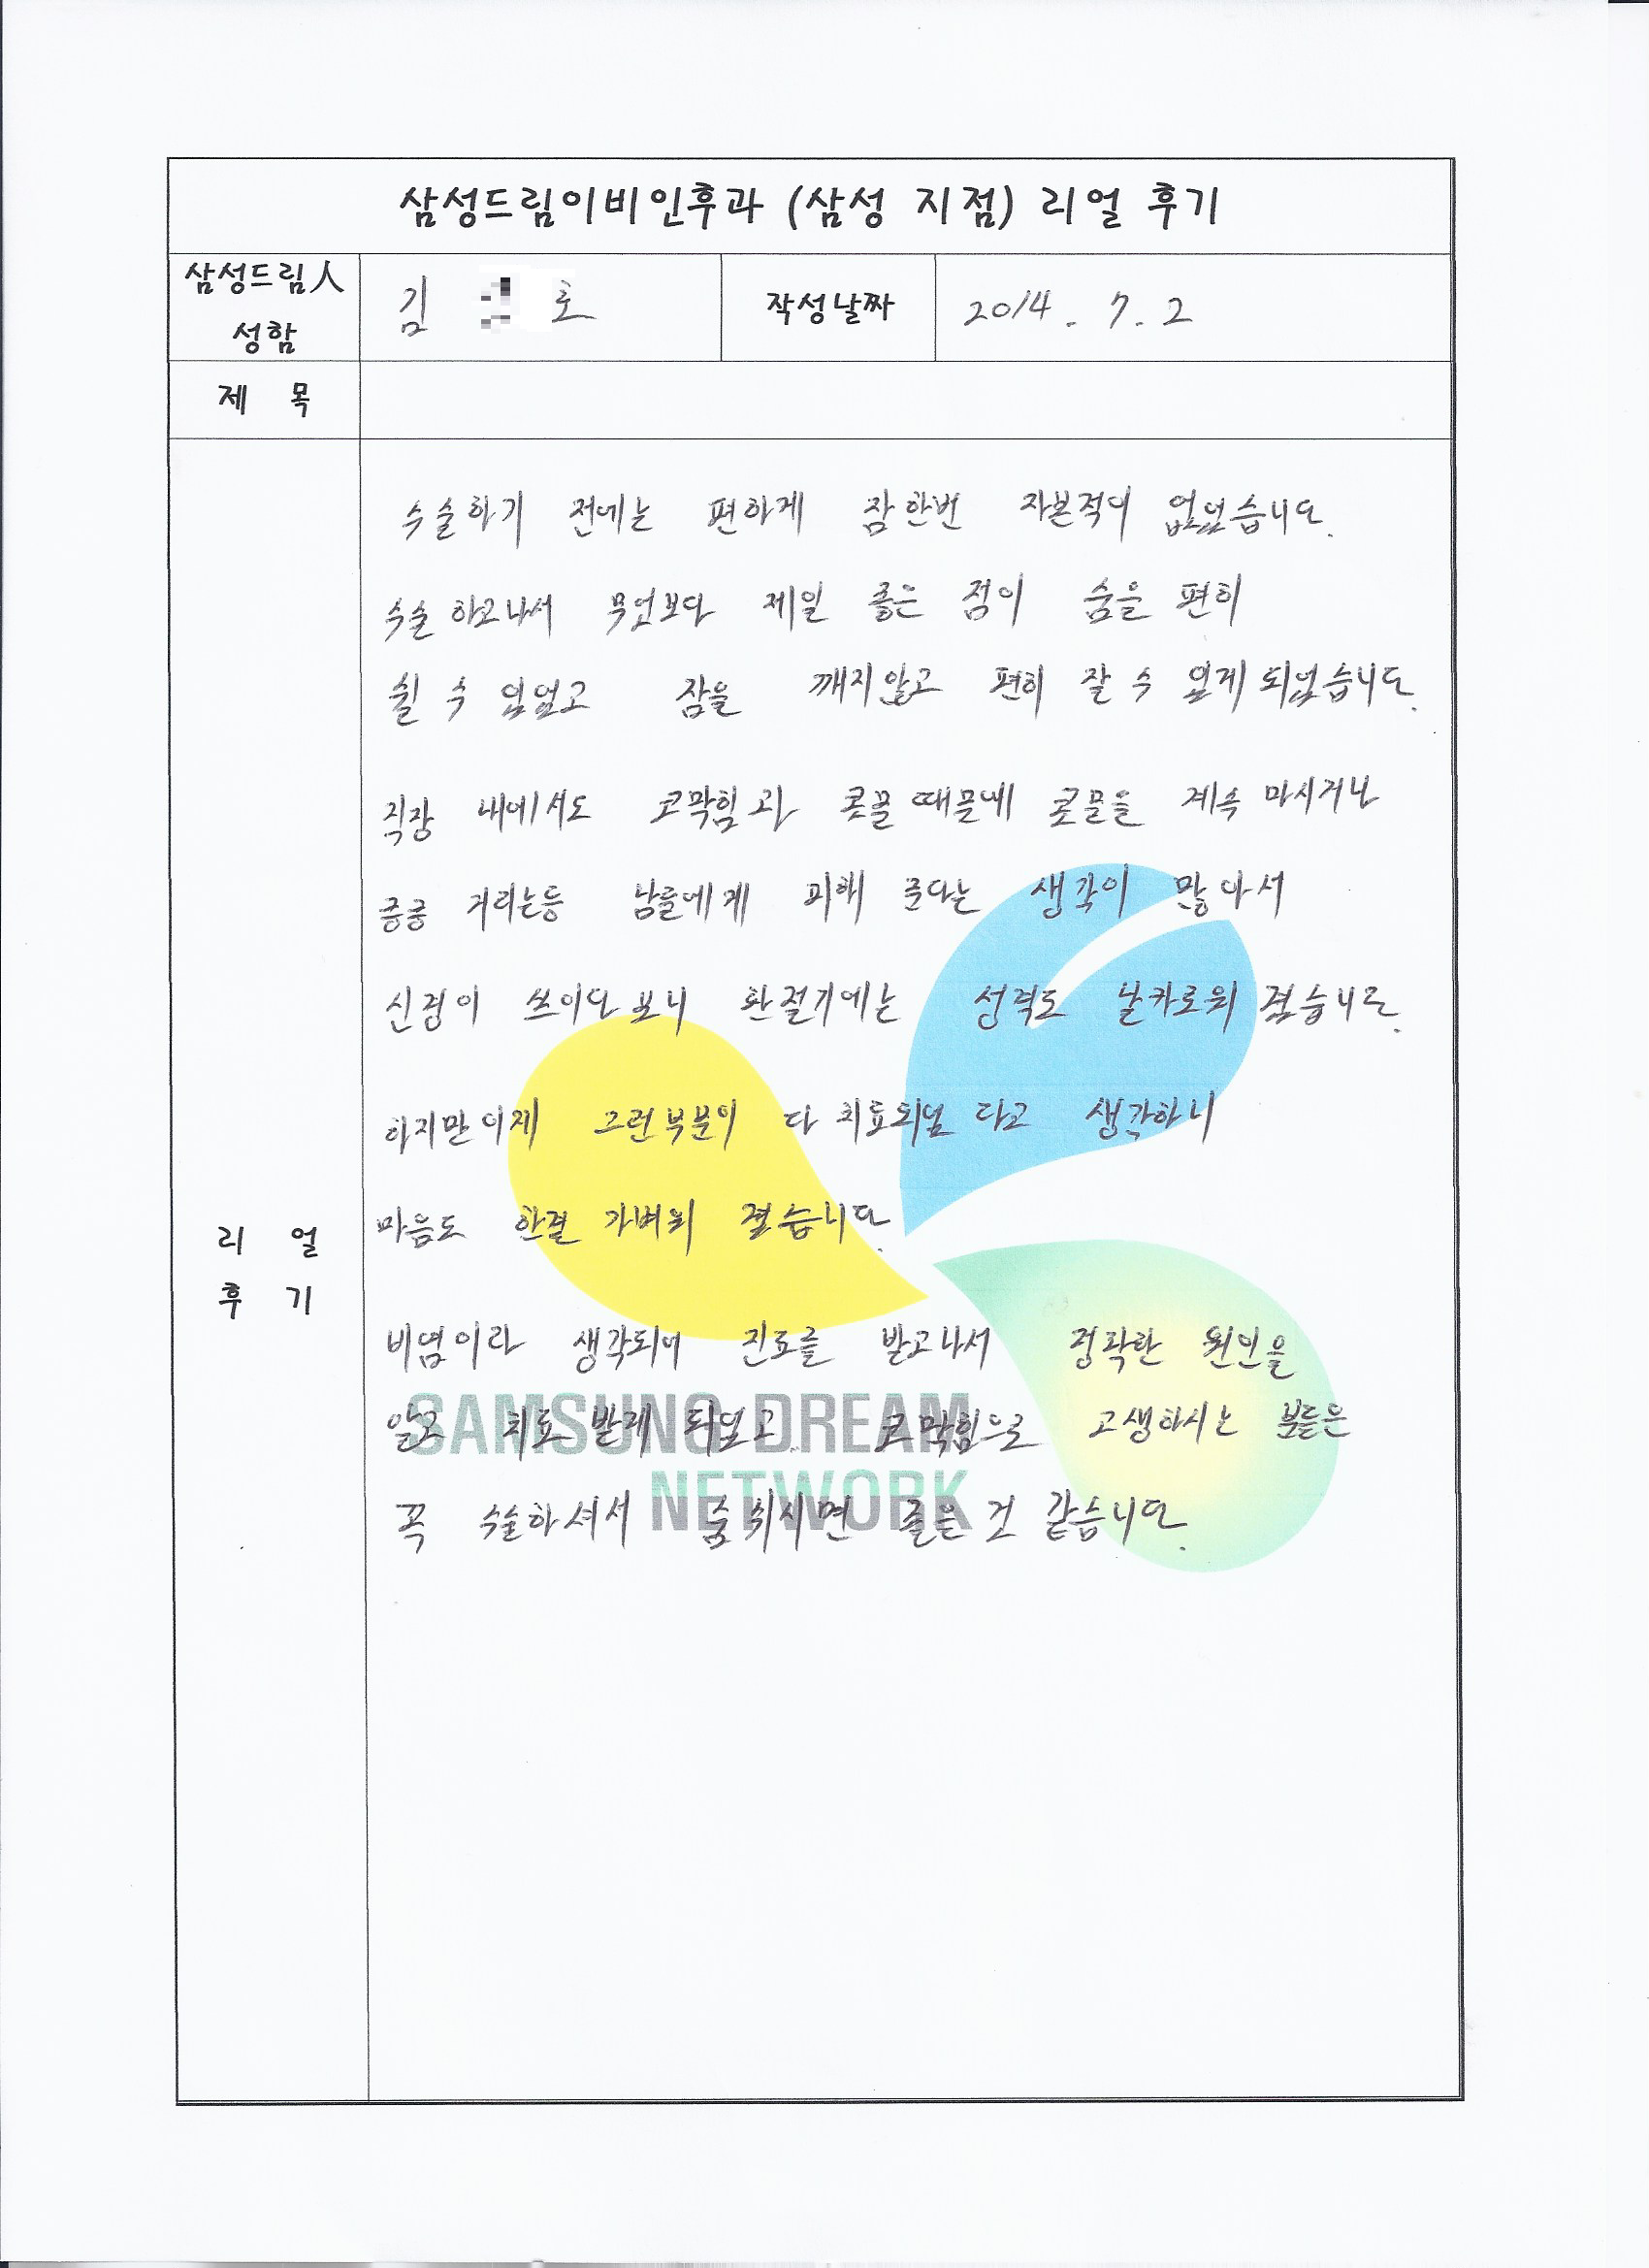 삼성드림이비인후과 (삼성 지점) 리얼 후기
삼성드림人
성함
김 호
작성날짜
2014. 7. 2
제 목
수술하기 전에는 편하게 잠한번 자본적이 없었습니다.
수술 하고나서 무엇보다 제일 좋은 점이 숨을 편히
쉴 수 있었고 잠을 깨지않고 편히 잘 수 있게 되었습니다.
직장 내에서도 코막힘과 콧물 때문에 콧물을 계속 마시거나
킁킁 거리는등 남들에게 피해 준다는 생각이 많아서
신경이 쓰이다 보니 환절기에는 성격도 날카로워 졌습니다.
하지만 이제 그런부분이 다 치료되었 다고 생각하니
마음도 한결 가벼워 졌습니다.
리 얼
후 기
비염이라 생각되어 진료를 받고나서 정확한 원인을
알고 치료 받게 되었고 코막힘으로 고생하시는 분들은
꼭 수술하셔서 숨쉬시면 좋을 것 같습니다.
SAMSUNG DREAM
NETWORK